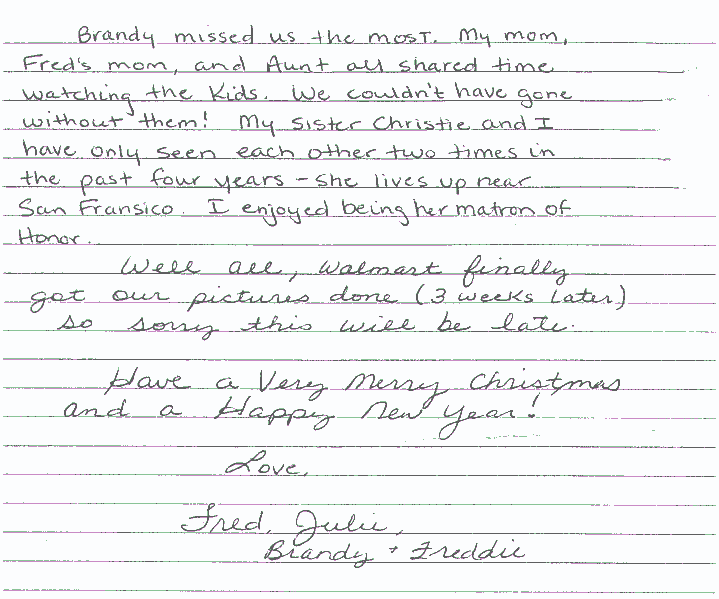 Brandy missed us the most. My mom,
Fred's mom, and Aunt all shared time
watching the Kids. We couldn't have gone
without them! My sister Christie and I
have only seen each other two times in
the past four years - she lives up near
San Fransico. I enjoyed being her matron of
Honor.
Well all, Walmart finally
got our pictures done (3 weeks Later)
so sorry this will be late.
Have a Very Merry Christmas
and a Happy New Year!
Love,
Fred, Julie,
Brandy + Freddie